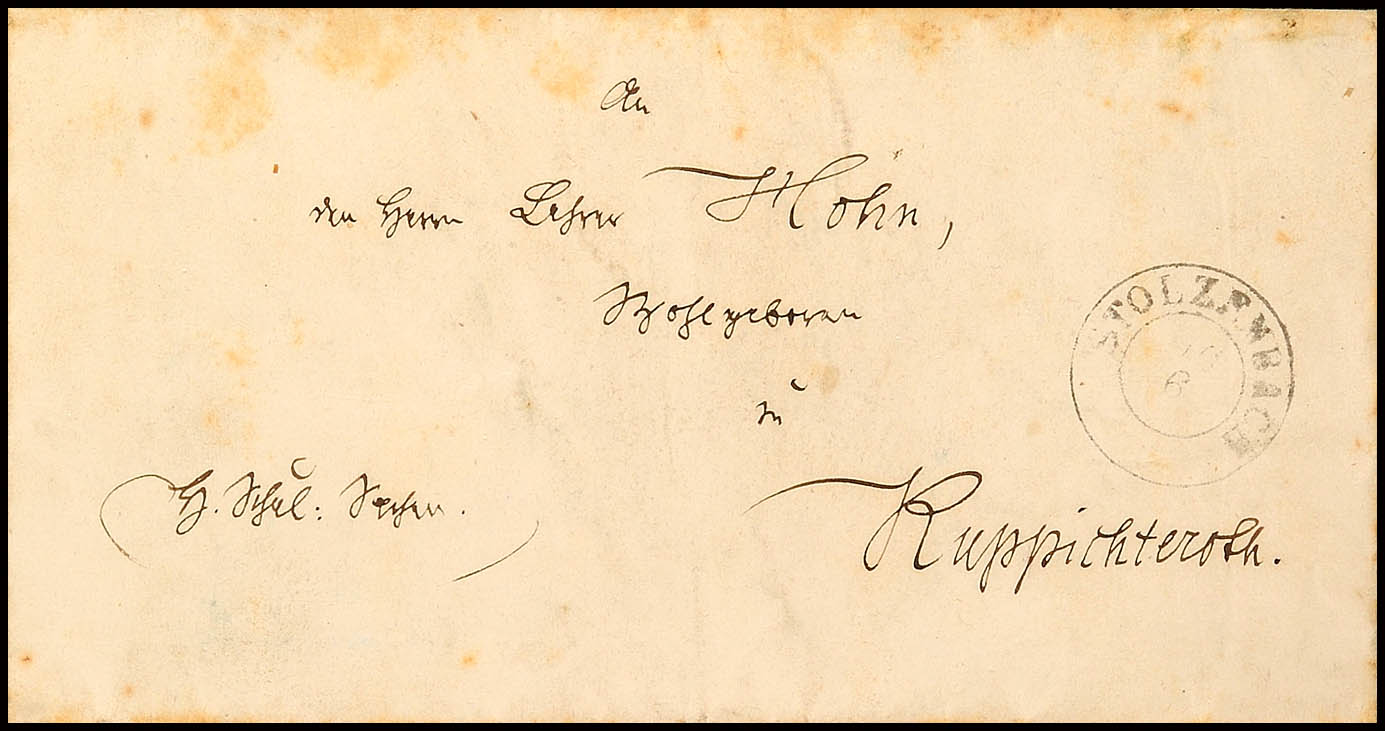 An
den Herrn Lehrer Höhn,
Wohlgeboren
zu
Ruppichteroth.
H. Schul: Sachen.
STOLZENBACH
6